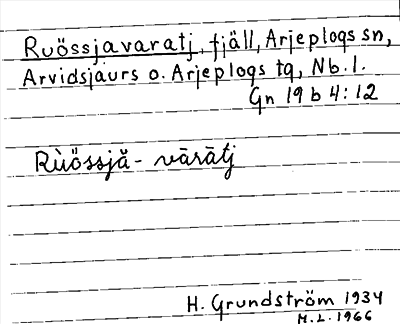 Ruössjavaratj, fjäll, Arjeplogs sn,
Arvidsjaurs o. Arjeplogs tg, Nb. l.
Gn 19 b 4:12
Rùössjǎ- vārātj
H. Grundström 1934
M.L. 1966